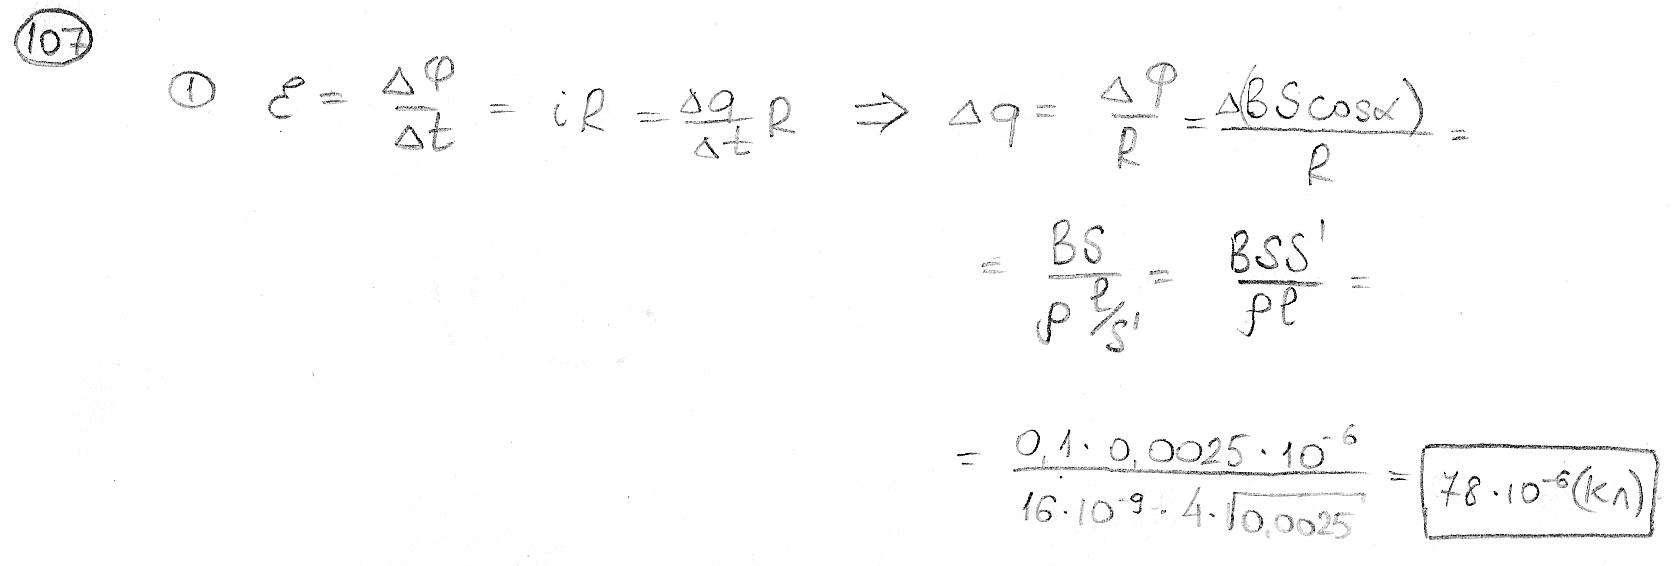 107
① ℰ = ΔФ/Δt = iR = Δq/Δt R ⇒ Δq = ΔФ/R = Δ(BScosα)/R =
= BS/(ρ l/S') = BSS'/(ρl) =
= (0,1·0,0025·10⁻⁶)/(16·10⁻⁹·4·√0,0025) = 78·10⁻⁶(Кл)